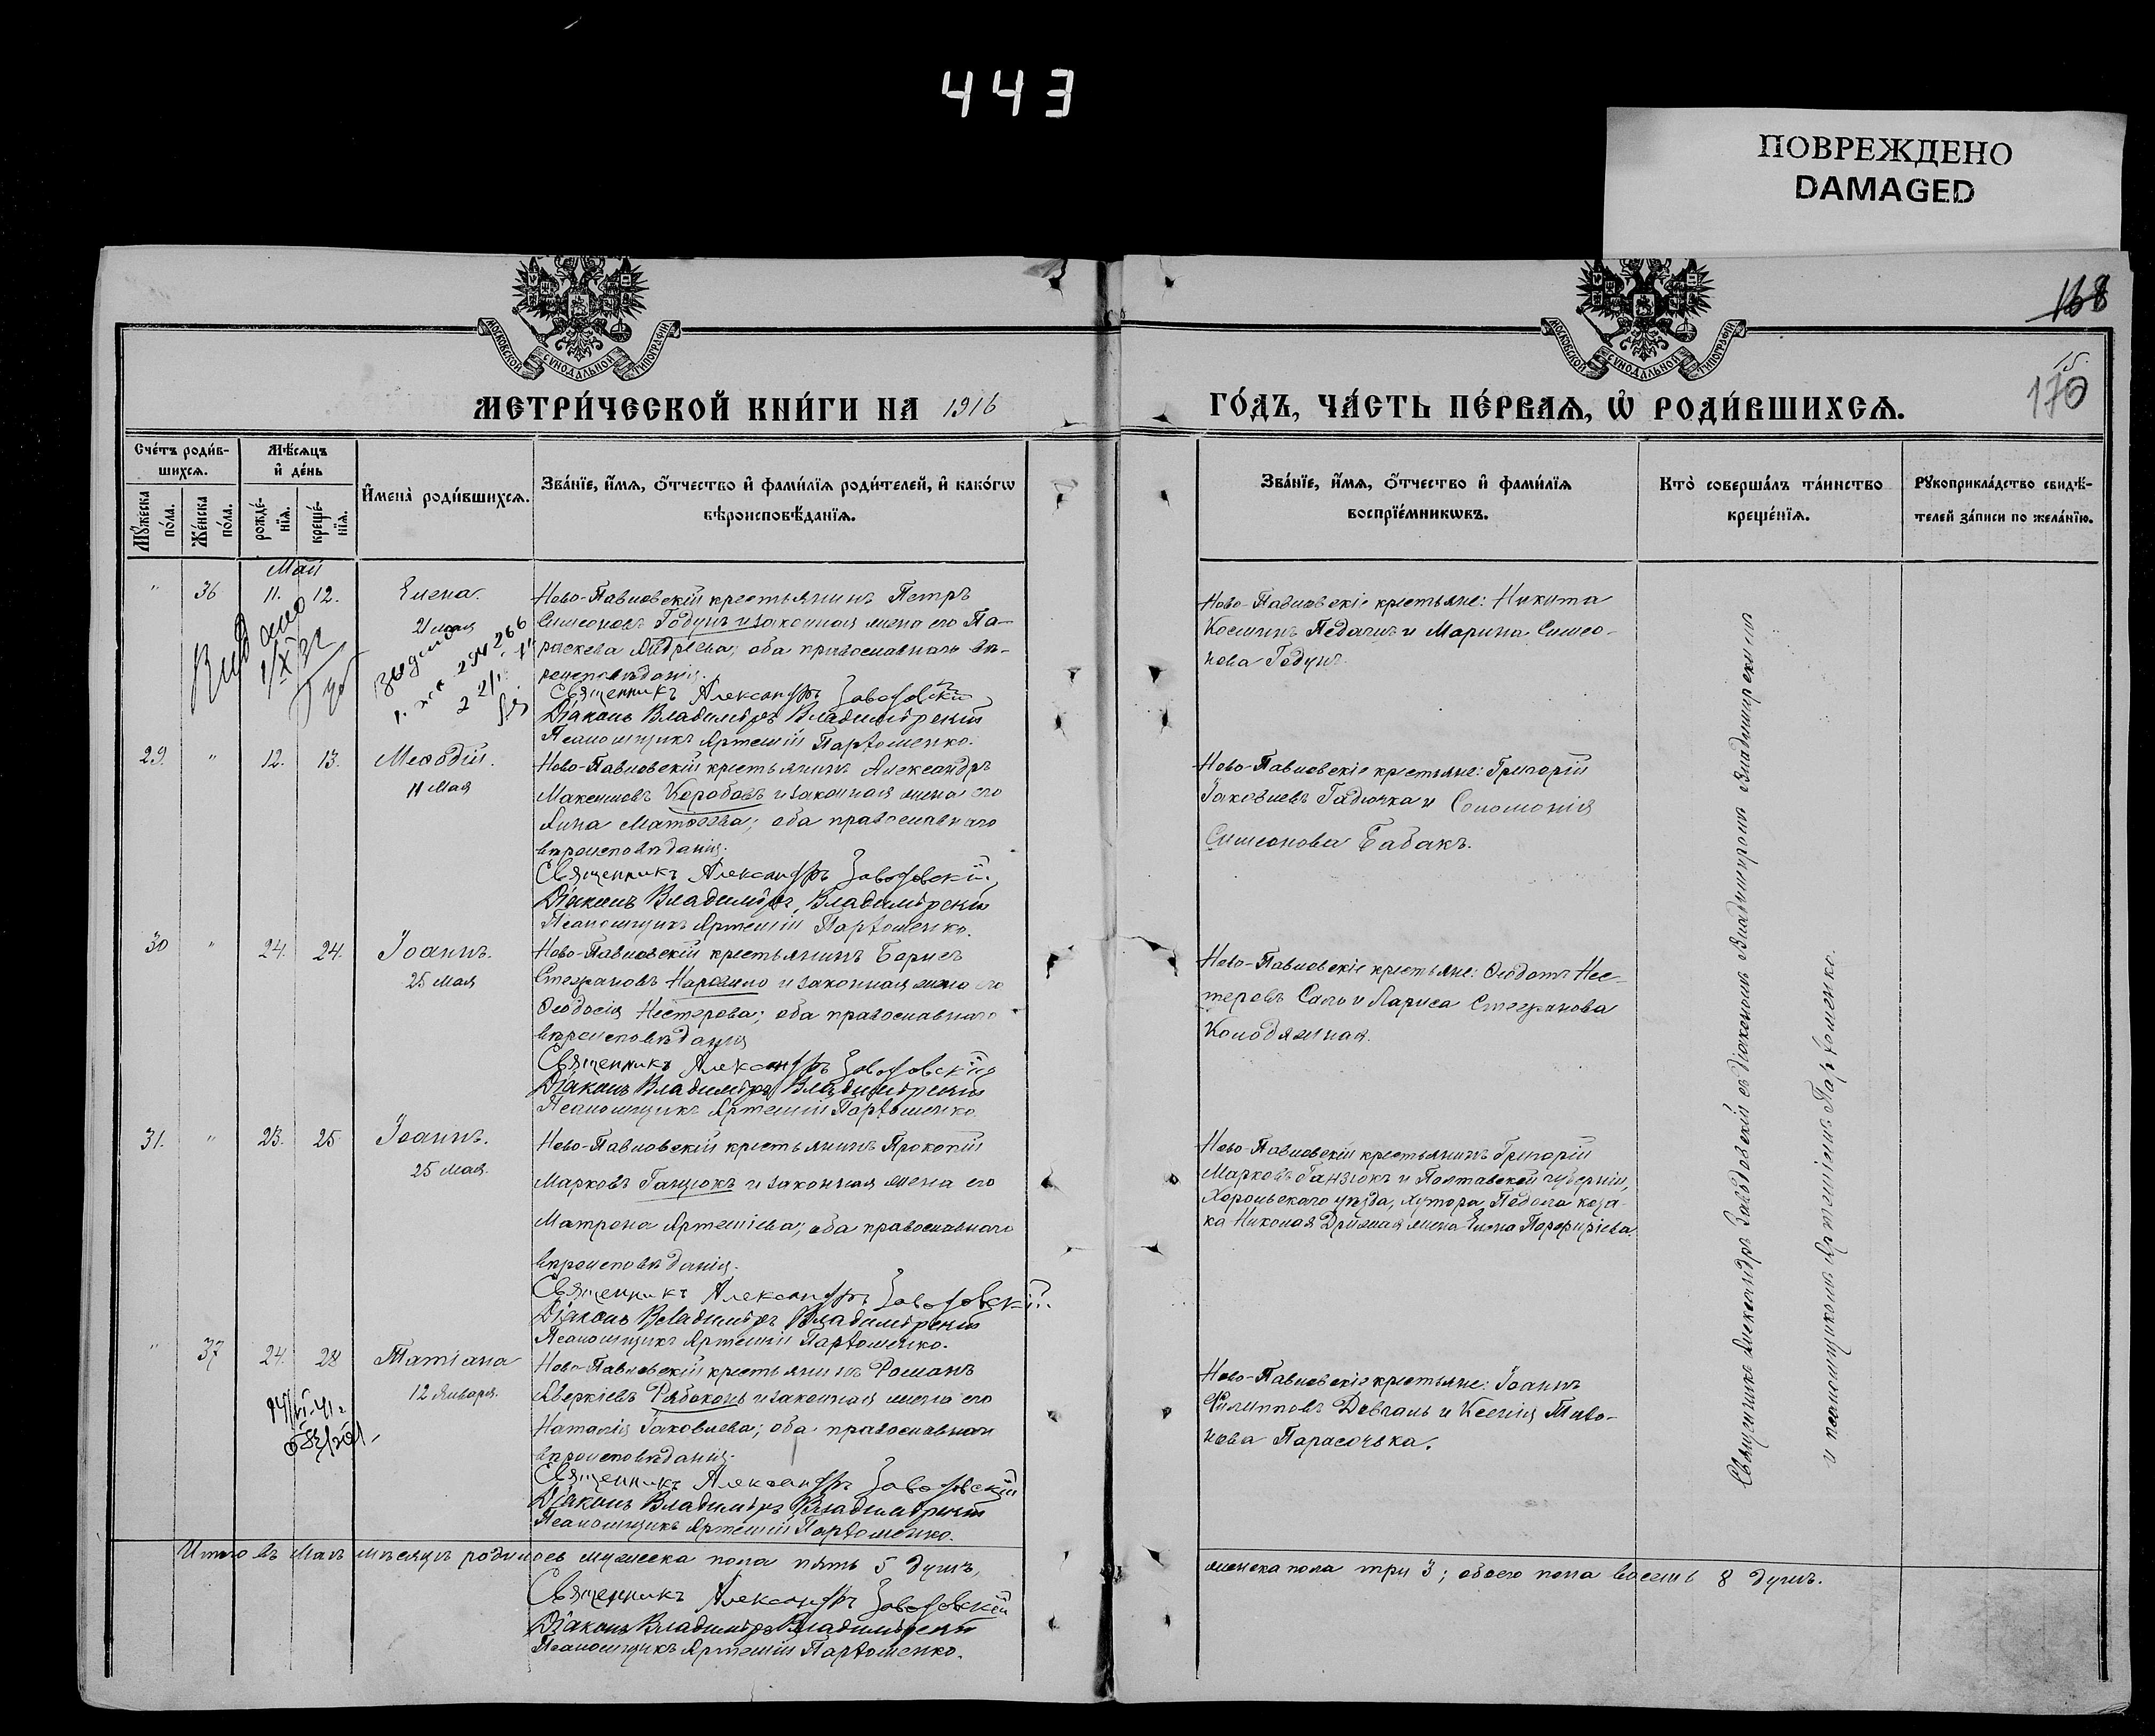 443
ПОВРЕЖДЕНО
DAMAGED
168
170
МОСКОВСКОЙ СѴНОДАЛЬНОЙ ТИПОГРАФІИ
МОСКОВСКОЙ СѴНОДАЛЬНОЙ ТИПОГРАФІИ
МЕТРИ́ЧЕСКОЙ КНИ́ГИ НА 1916
ГО́ДЪ, ЧА́СТЬ ПЕ́РВАѦ, Ѡ҆ РОДИ́ВШИХСѦ.
Сче́тъ роди́в-
шихсѧ.
Мѣ́сѧцъ
и҆ де́нь
Мꙋ́жеска
по́ла.
Же́нска
по́ла.
рожде́-
нїѧ.
креще́-
нїѧ.
И҆мена̀ роди́вшихсѧ.
Зва́нїе, и҆́мѧ, ѻ҆́тчество и҆ фами́лїѧ роди́телей, и҆ како́гѡ
вѣроисповѣ́данїѧ.
Зва́нїе, и҆́мѧ, ѻ҆́тчество и҆ фами́лїѧ
воспрїе́мникѡвъ.
Кто̀ соверша́лъ та́инство
креще́нїѧ.
Рꙋкоприкла́дство свидѣ́-
телей за́писи по жела́нїю.
Май
" 36 11. 12. Елена.
21 мая
Выдано
Ново-Павловскій крестьянинъ Петръ
Симеоновъ Годунъ и законная жена его Па-
раскева Андреева; оба православнаго вѣ-
роисповѣданія.
Священникъ Александръ Заводовскій
Діаконъ Владиміръ Владимірскій
Псаломщикъ Артемій Пархоменко.
Ново-Павловскіе крестьяне: Никита
Косминъ Педачъ и Марина Симео-
нова Годунъ.
29. " 12. 13. Меѳодій.
11 Мая
Ново-Павловскій крестьянинъ Александръ
Максимовъ Коробовъ и законная жена его
Анна Матѳеева; оба православнаго
вѣроисповѣданія.
Священникъ Александръ Заводовскій
Діаконъ Владиміръ Владимірскій
Псаломщикъ Артемій Пархоменко.
Ново-Павловскіе крестьяне: Григорій
Іаковлевъ Гадючка и Соломонія
Симеонова Бабакъ.
30 " 24. 24. Іоаннъ.
25 Мая
Ново-Павловскій крестьянинъ Борисъ
Стефановъ и законная жена его
Ѳеодосія Нестерова; оба православнаго
вѣроисповѣданія
Священникъ Александръ Заводовскій
Діаконъ Владиміръ Владимірскій
Псаломщикъ Артемій Пархоменко
Ново-Павловскіе крестьяне: Ѳеодотъ Нес-
теровъ Сало и Лариса Стефанова
Колодяжная.
31. " 23. 25 Іоаннъ.
25 Мая.
Ново-Павловскій крестьянинъ Прокопій
Марковъ Ганзюкъ и законная жена его
Матрона Артеміева; оба православнаго
вѣроисповѣданія.
Священникъ Александръ Заводовскій.
Діаконъ Владиміръ Владимірскій
Псаломщикъ Артемій Пархоменко.
Ново-Павловскій крестьянинъ Григорій
Марковъ Ганзюкъ и Полтавской губерніи,
Хорольскаго уѣзда, хутора Педоса коза-
ка Николая жена Елена Порфиріева.
" 37 24. 28 Татіана
12 Января.
Ново-Павловскій крестьянинъ Романъ
Аверкіевъ Рябоконь и законная жена его
Наталія Іаковлева; оба православнаго
вѣроисповѣданія.
Священникъ Александръ Заводовскій
Діаконъ Владиміръ Владимірскій
Псаломщикъ Артемій Пархоменко.
Ново-Павловскіе крестьяне: Іоаннъ
Филипповъ Довгаль и Ксенія
Парасочька.
Священникъ Александръ Заводовскій съ діакономъ Владиміромъ Владимірскимъ
и псаломщикомъ Артеміемъ Пархоменко.
Итого въ Маѣ мѣсяцѣ родилось мужеска пола пять 5 душъ,
женска пола три 3; обоего пола восемь 8 душъ.
Священникъ Александръ Заводовскій
Діаконъ Владиміръ Владимірскій
Псаломщикъ Артемій Пархоменко.